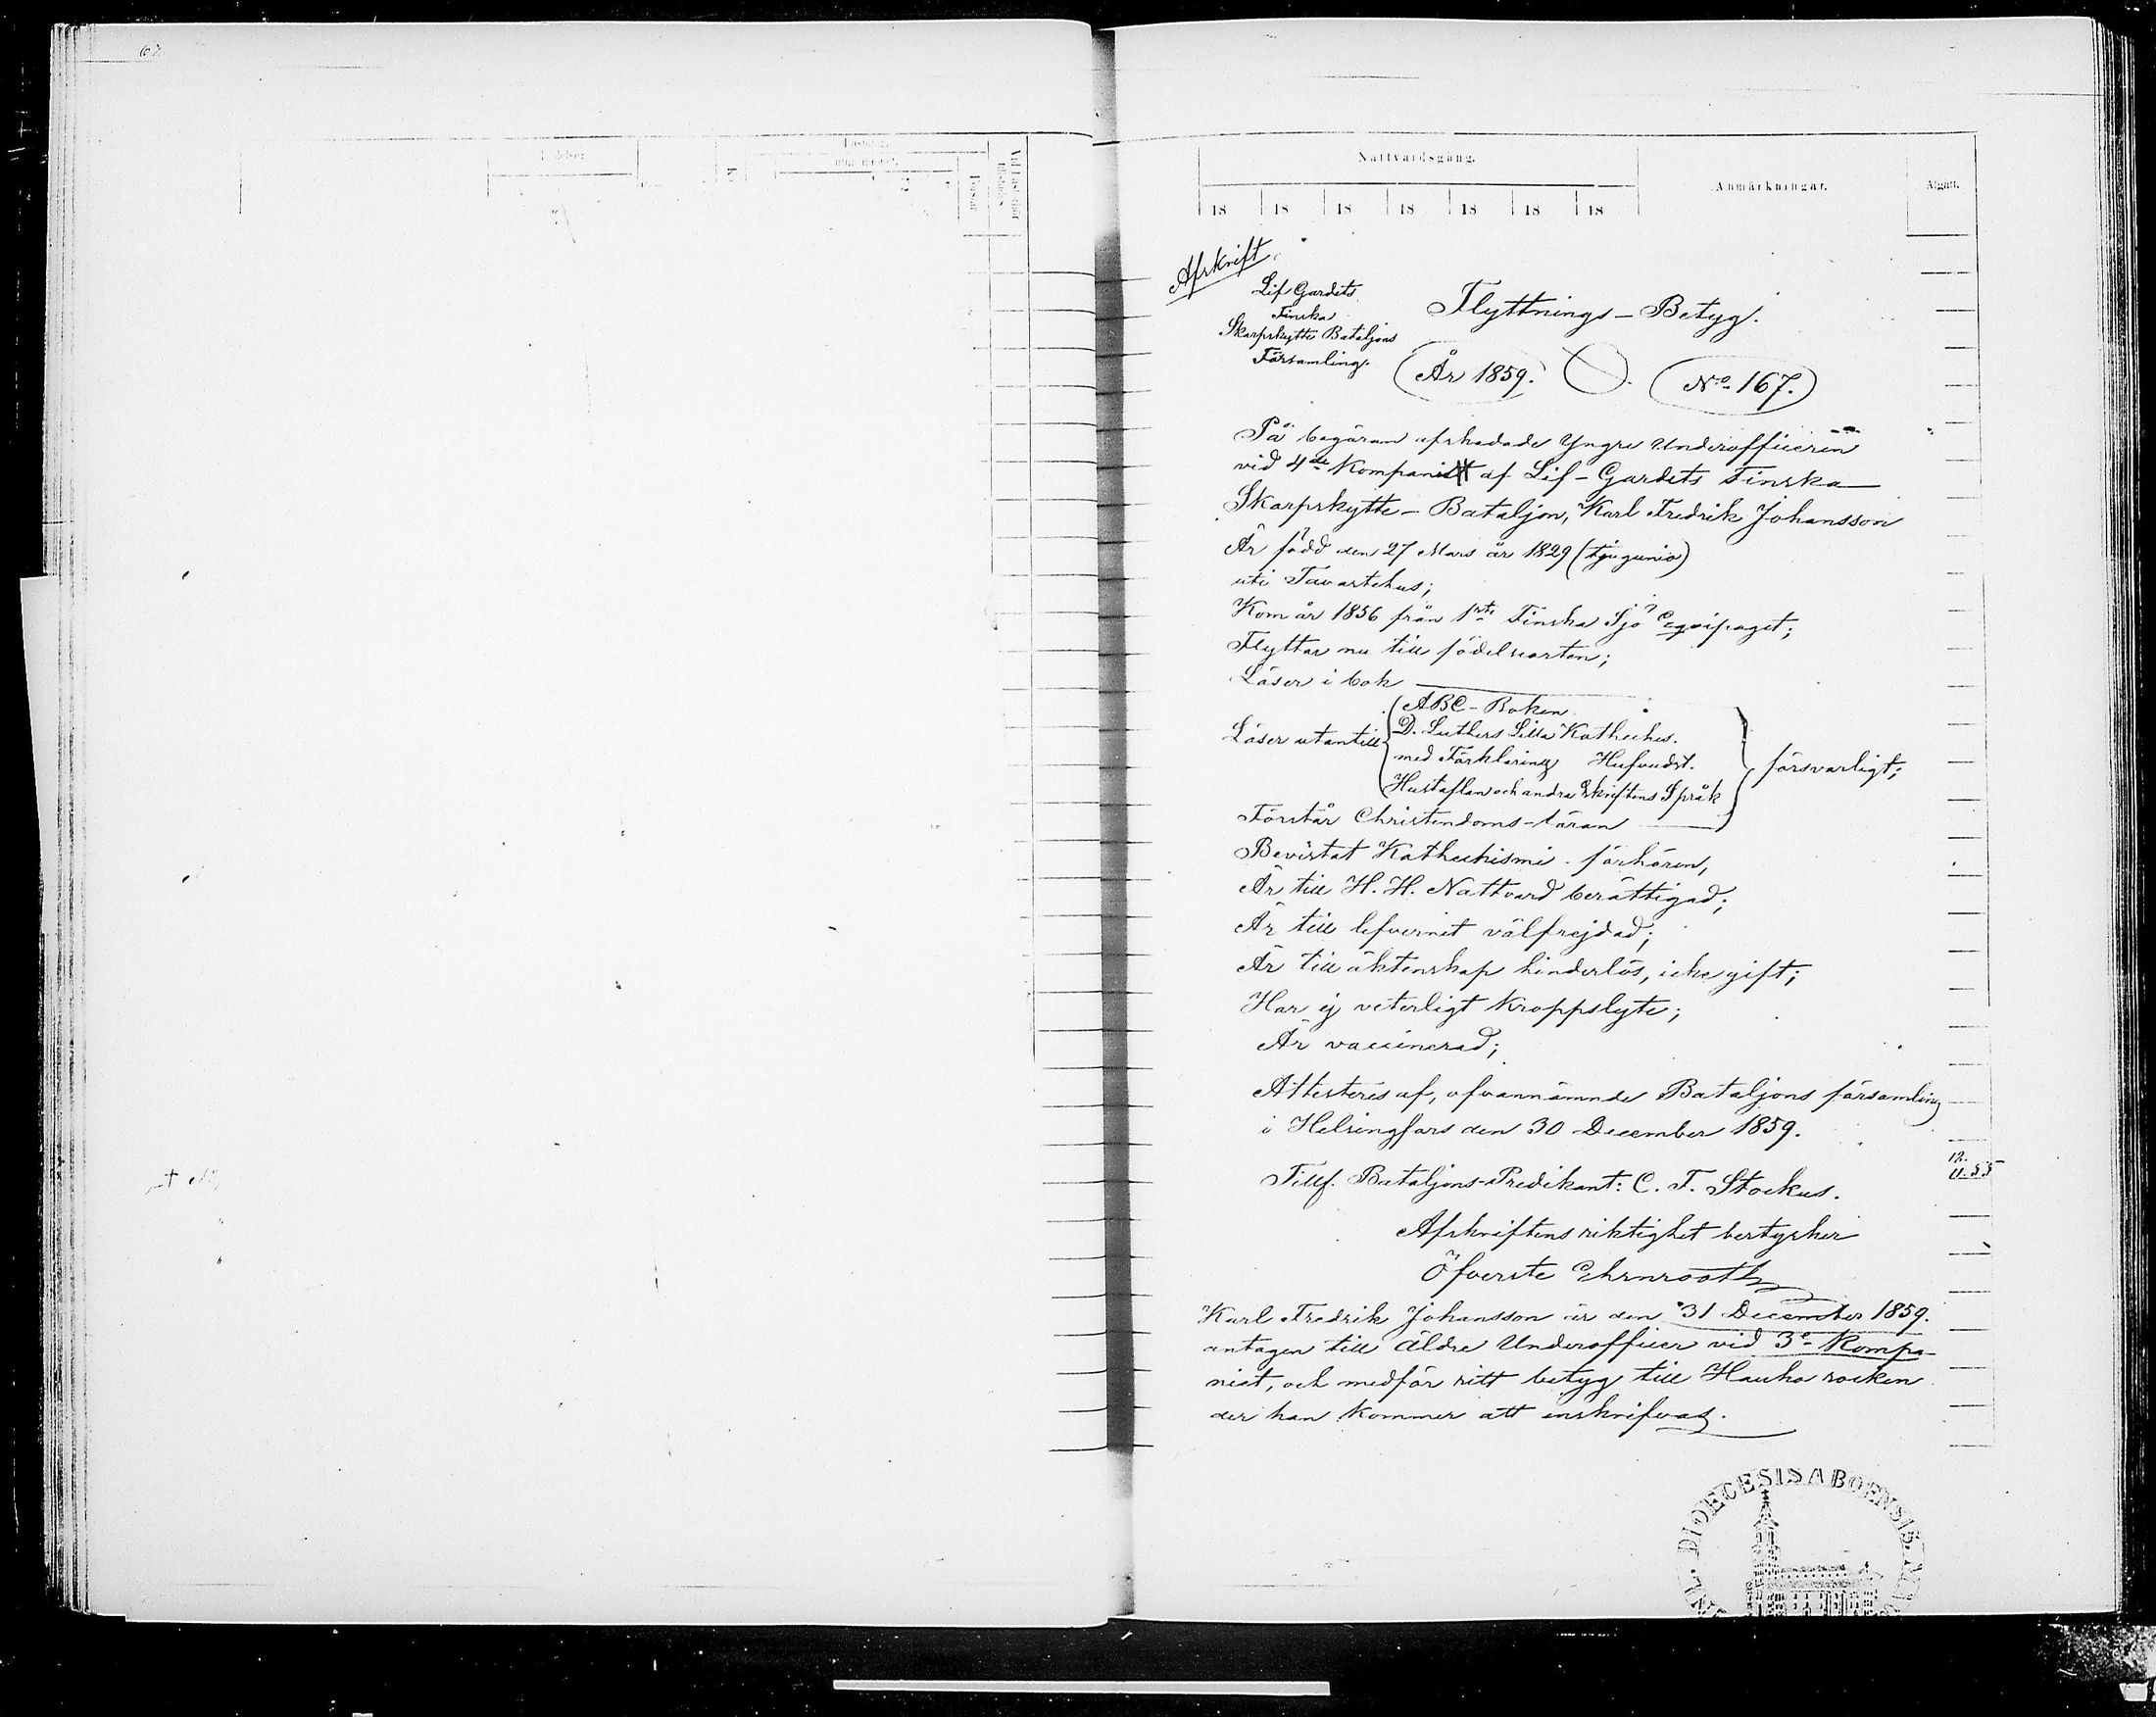 Nattvardsgång.
Anmärkningar.
Afgått.
18 18 18 18 18 18 18
Afskrift.
Lif Gardets
Finska
Skarpskytte Bataljons
Församling.
Flyttnings-Betyg.
År 1859. No 167.
På begäran afskedade Yngre Underofficeren
vid 4de Kompaniet af Lif-Gardets Finska
Skarpskytte-Bataljon, Karl Fredrik Johansson
Är född den 27 Mars år 1829 (tjugunio)
uti Tavastehus;
Kom år 1856 från 1sta Finska Sjö Eqvipaget;
Flyttar nu till födelseorten;
Läser i bok
ABC-Boken
Läser utantill D. Luthers Lilla Kateches.
med Förklaring Hufvudst. försvarligt;
Hustaflan och andra Skriftens Språk
Förstår Christendoms-läran
Bevistat Kathechismi förhören,
Är till H. H. Nattvard berättigad;
Är till lefvernet välfrejdad;
Är till äktenskap hinderlös, icke gift;
Har ej veterligt kroppslyte;
Är vaccinerad;
Attesteras af, ofvannämnde Bataljons församling
i Helsingfors den 30 December 1859.
Tillf. Bataljons-Predikant: C. F. Stockus.
Afskriftens riktighet bestyrker
Öfverste Ehrnrooth
Karl Fredrik Johansson är den 31 December 1859.
antagen till Äldre Underofficer vid 3e Kompa-
niet, och medför sitt betyg till Hauho socken
der han kommer att inskrifvas.
DIOECESIS ABOENSIS